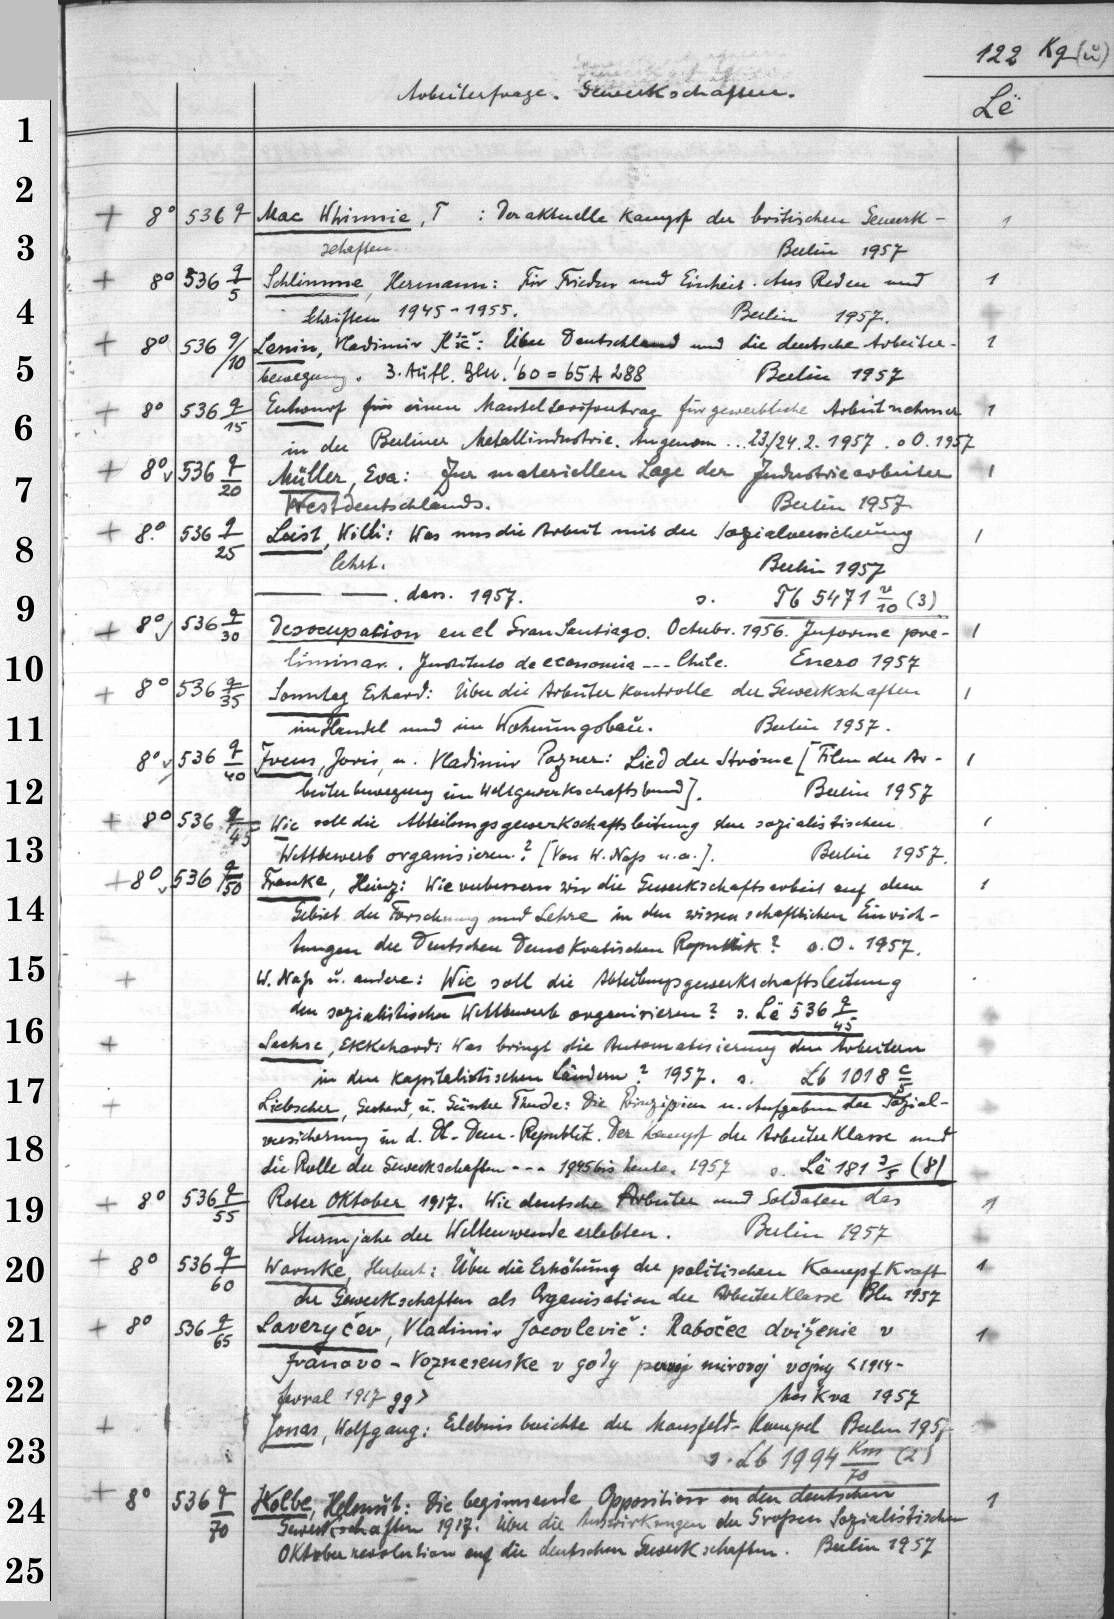 122 Kq (ü)
Arbeiterfrage. Gewerkschaften.
Lë
1
2
+ 8° 536 q Mac Whinnie, T : Der aktuelle Kampf der britischen Gewerk- 1
3 schaften. Berlin 1957
+ 8° 536 q/5 Schlimme, Hermann: Für Frieden und Einheit. Aus Reden und 1
4 Schriften 1945-1955. Berlin 1957.
+ 8° 536 q/10 Lenin, Vladimir Il'ič: Über Deutschland und die deutsche Arbeiter- 1
5 bewegung. 3. Aufl. Bln. '60 = 65 A 288 Berlin 1957
+ 8° 536 q/15 Entwurf für einen Manteltarifvertrag für gewerbliche Arbeitnehmer 1
6 in der Berliner Metallindustrie. Angenom... 23./24.2.1957. o O. 1957
+ 8° 536 q/20 Müller, Eva: Zur materiellen Lage der Industriearbeiter 1
7 Westdeutschlands. Berlin 1957
+ 8° 536 q/25 Leist, Willi: Was uns die Arbeit mit der Sozialversicherung 1
8 lehrt. Berlin 1957
— — . dass. 1957. s. Tb 5471 v/10 (3)
9
+ 8° 536 q/30 Desocupación en el Gran Santiago. Octubr. 1956. Informe pre- 1
10 liminar. Instituto de economia --- Chile. Enero 1957
+ 8° 536 q/35 Sonntag Erhard: Über die Arbeiterkontrolle der Gewerkschaften 1
11 im Handel und im Wohnungsbau. Berlin 1957.
8° 536 q/40 Ivens, Joris, u. Vladimir Pozner: Lied der Ströme [Film der Ar- 1
12 beiterbewegung im Weltgewerkschaftsbund]. Berlin 1957
+ 8° 536 q/45 Wie soll die Abteilungsgewerkschaftsleitung den sozialistischen 1
13 Wettbewerb organisieren? [Von W. Naß u.a.]. Berlin 1957.
+ 8° 536 q/50 Franke, Heinz: Wie verbessern wir die Gewerkschaftsarbeit auf dem 1
14 Gebiet der Forschung und Lehre in den wissenschaftlichen Einrich-
tungen der Deutschen Demokratischen Republik? o.O. 1957.
15 + W. Naß u. andere: Wie soll die Abteilungsgewerkschaftsleitung
den sozialistischen Wettbewerb organisieren? s. Lë 536 q/45
16 + Sachse, Ekkehard: Was bringt die Automatisierung den Arbeitern
17 in den kapitalistischen Ländern? 1957. s. Lb 1018 c/5
+ Liebscher, Gerhard, u. Günter Thude: Die Prinzipien u. Aufgaben der Sozial-
18 versicherung in d. Dt. Dem. Republik. Der Kampf der Arbeiterklasse und
die Rolle der Gewerkschaften --- 1945 bis heute. 1957 s. Lë 181 3/5 (8)
19 + 8° 536 q/55 Roter Oktober 1917. Wie deutsche Arbeiter und Soldaten das 1
Sturmjahr der Weltenwende erlebten. Berlin 1957
20 + 8° 536 q/60 Warnke, Herbert: Über die Erhöhung der politischen Kampfkraft 1
der Gewerkschaften als Organisation der Arbeiterklasse Bln 1957
21 + 8° 536 q/65 Laveryčev, Vladimir Jacovlevič: Rabočee dviženie v 1
Ivanovo-Voznesenske v gody pervoj mirovoj vojny <1914-
22 fevral 1917 gg> Moskva 1957
+ Jonas, Wolfgang: Erlebnisberichte der Mansfeld-Kumpel Berlin 1957
23 s. Lb 1994 Km/70 (2)
24 + 8° 536 q/70 Kolbe, Helmut: Die beginnende Opposition in den deutschen 1
Gewerkschaften 1917. Über die Auswirkungen der Großen Sozialistischen
25 Oktoberrevolution auf die deutschen Gewerkschaften. Berlin 1957